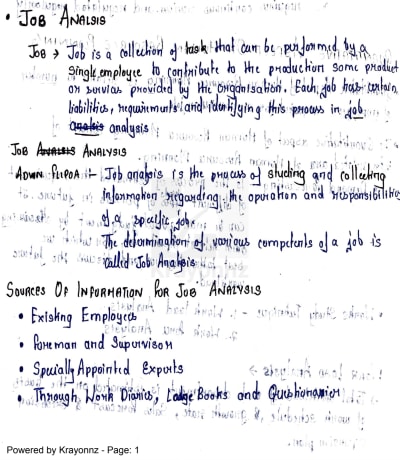 • JOB ANALSIS
JOB → Job is a collection of task that can be performed by a
single employee to contribute to the production some product
or servies provided by the organisation. Each job has certain
liabilities, requirements and identifying this process in job
analysis
JOB ANALYSIS
ADWN FLIPOA :- Job analysis is the process of studing and collecting
information regarding the operation and responsibilities
of a specific job.
The determination of various competents of a job is
called Job Analysis
SOURCES OF INFORMATION FOR JOB ANALYSIS
• Existing Employees
• Foreman and Supervisor
• Specially Appointed Experts
• Through Work Diaries, Ladge Books and Questionarior
Powered by Krayonnz - Page: 1